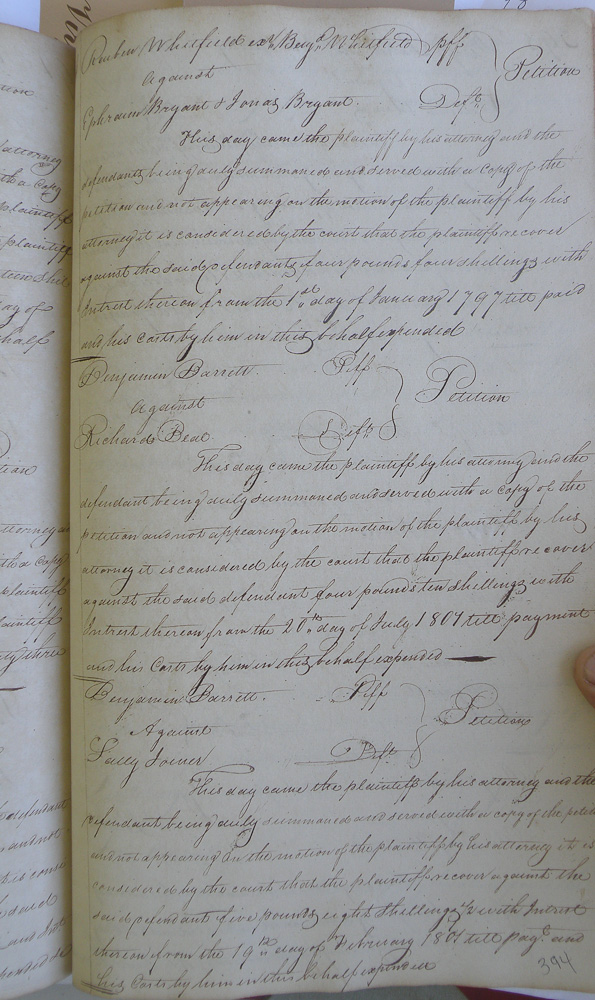 Reuben Whitfield exr. Benjn. Whitfield pff
Against
Petition
Ephraim Bryant & Jonas Bryant. Deft.
This day came the plaintiff by his attorney and the
defendants being duly summoned and served with a copy of the
petition and not appearing on the motion of the plaintiff by his
attorney it is considered by the court that the plaintiff recover
against the said defendants four pounds four shillings with
Intrest thereon from the 1st day of January 1797 till paid
and his costs by him in this behalf expended
Benjamin Barrett. Piff
Against
Petition
Richard Beal Deft.
This day came the plaintiff by his attorny and the
defendant being duly summoned and served with a copy of the
petition and not appearing on the motion of the plaintiff by his
attorney it is considered by the court that the plaintiff recover
against the said defendant four pounds ten shillings with
Intrest thereon from the 20th day of July 1801 till payment
and his Costs by him in this behalf expended
Benjamin Barrett. Piff
Petition
Against
Sally Joiner Deft.
This day came the plaintiff by his attorney and the
defendant being duly summoned and served with a copy of the
and not appearing on the motion of the plaintiff by his attorney it is
considered by the court that the plaintiff recover against the
said defendant five pounds eight shillings with Intrest
thereon from the 19th day of February 1801 till and
his Costs by him in this behalf expended
394